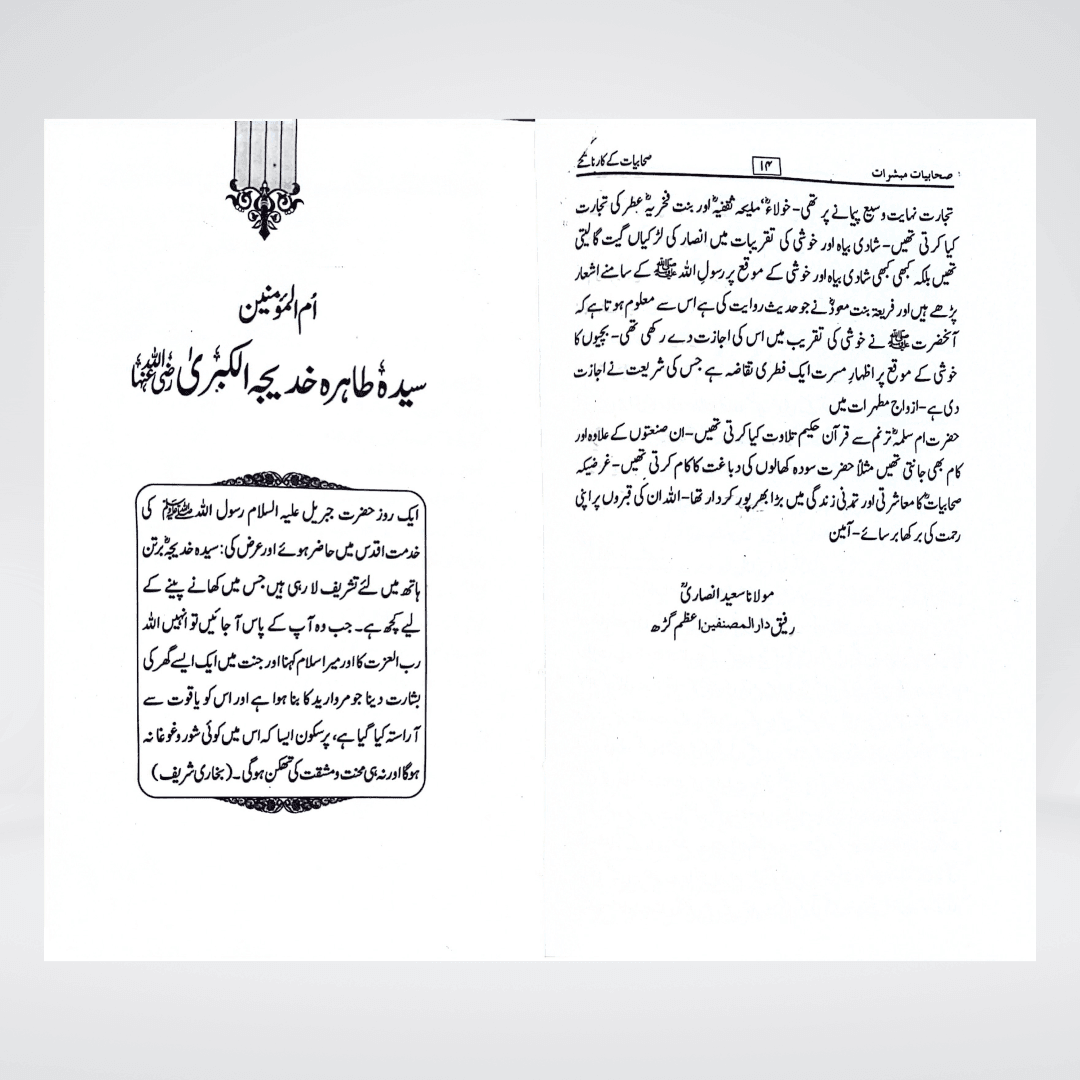 صحابیات مبشرات
۱۴
صحابیات کے کارنامے
تجارت نہایت وسیع پیمانے پر تھی- خولاءؓ، ملیحہ ثقفیہؓ اور بنت فخریہؓ عطر کی تجارت
کیا کرتی تھیں- شادی بیاہ اور خوشی کی تقریبات میں انصار کی لڑکیاں گیت گا لیتی
تھیں بلکہ کبھی کبھی شادی بیاہ اور خوشی کے موقع پر رسول اللہ ﷺ کے سامنے اشعار
پڑھے ہیں اور فریعۃ بنت معوذؓ نے جو حدیث روایت کی ہے اس سے معلوم ہوتا ہے کہ
آنحضرت ﷺ نے خوشی کی تقریب میں اس کی اجازت دے رکھی تھی- بچیوں کا
خوشی کے موقع پر اظہارِ مسرت ایک فطری تقاضہ ہے جس کی شریعت نے اجازت
دی ہے- ازواج مطہرات میں
حضرت ام سلمہؓ ترنم سے قرآن حکیم تلاوت کیا کرتی تھیں- ان صنعتوں کے علاوہ اور
کام بھی جانتی تھیں مثلاً حضرت سودہ کھالوں کی دباغت کا کام کرتی تھیں- غرضیکہ
صحابیاتؓ کا معاشرتی اور تمدنی زندگی میں بڑا بھرپور کردار تھا- اللہ ان کی قبروں پر اپنی
رحمت کی برکھا برسائے- آمین
مولانا سعید انصاریؒ
رفیق دار المصنفین اعظم گڑھ
اُم المؤمنین
سیدہ طاہرہ خدیجہ الکبریٰ رضی اللہ عنہا
ایک روز حضرت جبریل علیہ السلام رسول اللہ ﷺ کی
خدمت اقدس میں حاضر ہوئے اور عرض کی: سیدہ خدیجہؓ برتن
ہاتھ میں لئے تشریف لا رہی ہیں جس میں کھانے پینے کے
لیے کچھ ہے۔ جب وہ آپ کے پاس آ جائیں تو انہیں اللہ
رب العزت کا اور میرا سلام کہنا اور جنت میں ایک ایسے گھر کی
بشارت دینا جو مروارید کا بنا ہوا ہے اور اس کو یاقوت سے
آراستہ کیا گیا ہے، پرسکون ایسا کہ اس میں کوئی شور و غوغا نہ
ہوگا اور نہ ہی محنت و مشقت کی تھکن ہوگی۔ (بخاری شریف)